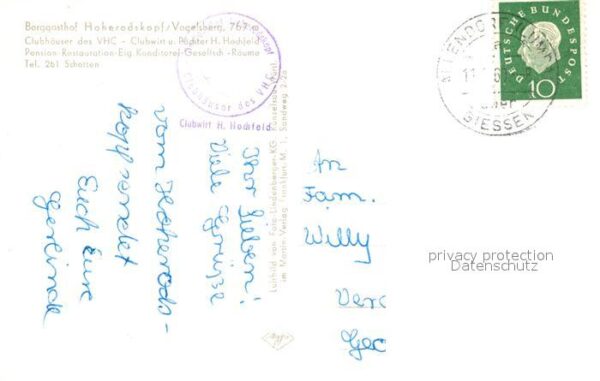 Berggasthof Hoherodskopf/Vogelsberg, 767 m
Clubhäuser des VHC - Clubwirt u. Pächter H. Hochfeld
Pension-Restauration-Eig. Konditorei-Gesellsch.-Räume
Tel. 261 Schotten
Clubhäuser des VHC
Clubwirt H. Hochfeld
DEUTSCHE BUNDESPOST
10
GIESSEN
Luftbild von Foto-Lindenberger-KG
im Martin-Verlag Frankfurt/M. 1, Sandweg
Ihr Lieben!
Viele Grüße
vom Hoherods-
kopf sendet
Euch Eure
Gerlinde
An
Fam.
Willy
privacy protection
Datenschutz